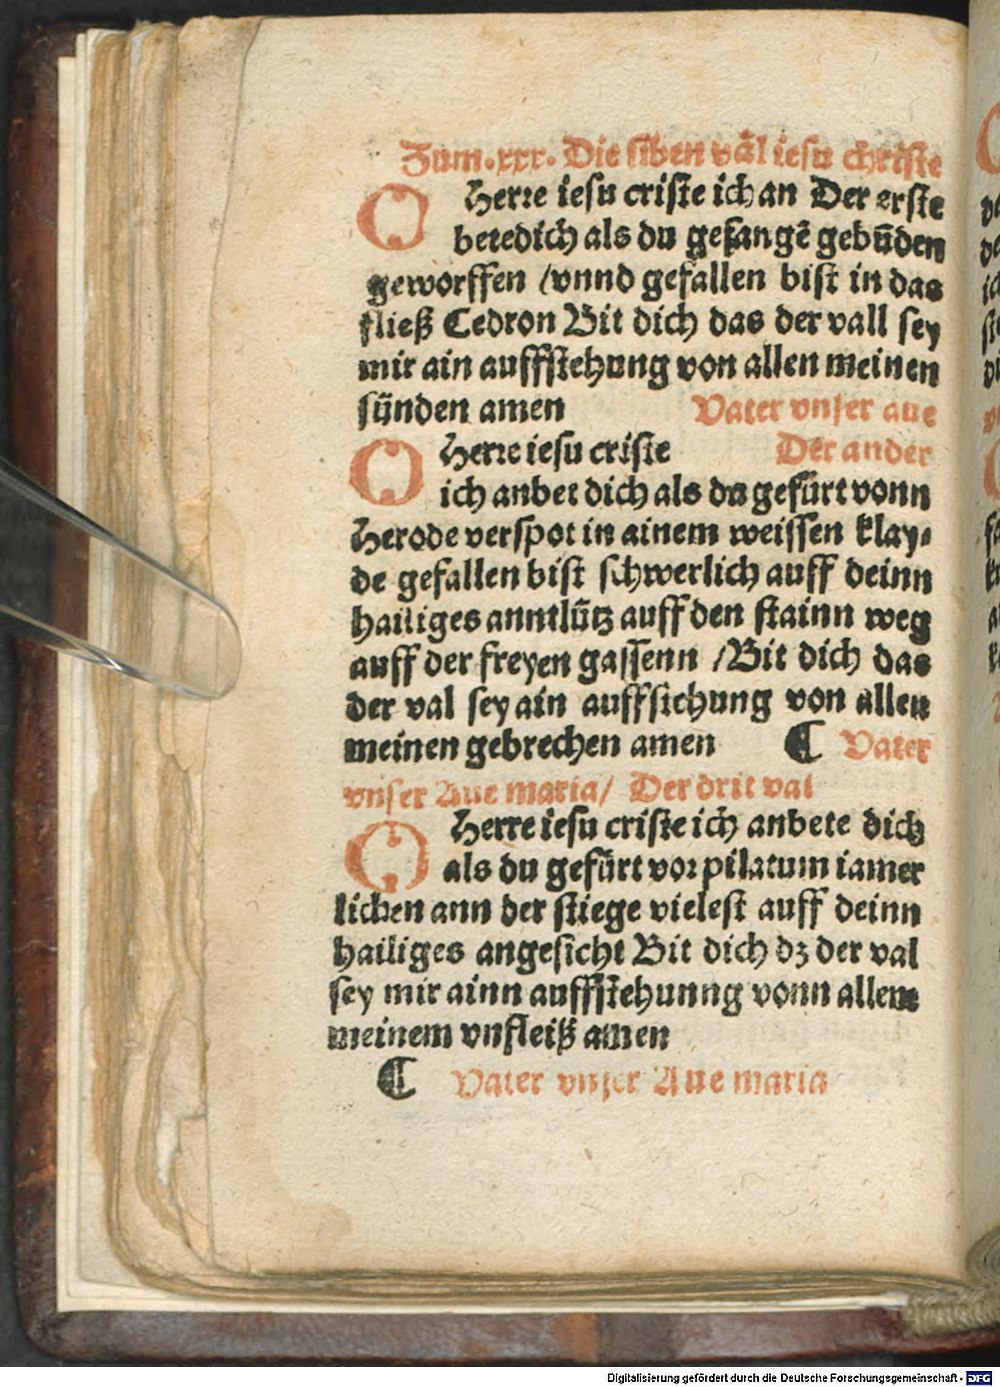 Zum .xxx. Die siben väl iesu christe
O Herre iesu criste ich an Der erste
betedich als du gefangē gebūden
geworffen /vnnd gefallen bist in das
fließ Cedron Bit dich das der vall sey
mir ain auffstehung von allen meinen
sünden amen Vater vnser aue
O Herre iesu criste Der ander
ich anbet dich als du gefürt vonn
Herode verspot in ainem weissen klay⸗
de gefallen bist schwerlich auff deinn
hailiges anntlütz auff den stainn weg
auff der freyen gassenn /Bit dich das
der val sey ain auffstchung von allen
meinen gebrechen amen ¶ Vater
vnser Aue maria/ Der drit val
O Herre iesu criste ich anbete dich
als du gefürt vor pilatum iamer
lichen ann der stiege vielest auff deinn
hailiges angesicht Bit dich dz der val
sey mir ainn auffstehunng vonn allem
meinem vnfleiß amen
¶ Vater vnser Aue maria
Digitalisierung gefördert durch die Deutsche Forschungsgemeinschaft - DFG